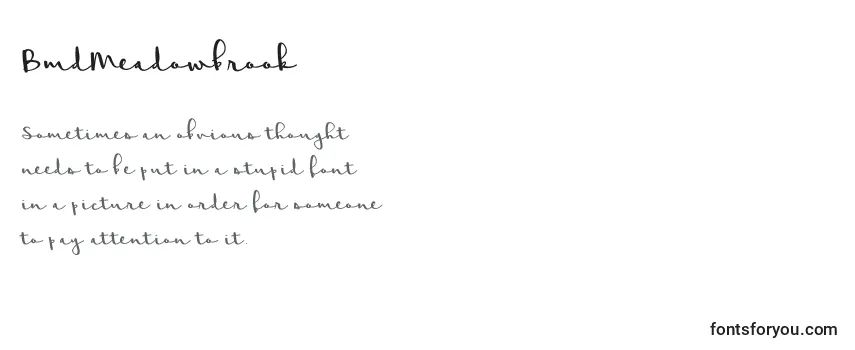 BmdMeadowbrook
Sometimes an obvious thought
needs to be put in a stupid font
in a picture in order for someone
to pay attention to it.
fontsforyou.com